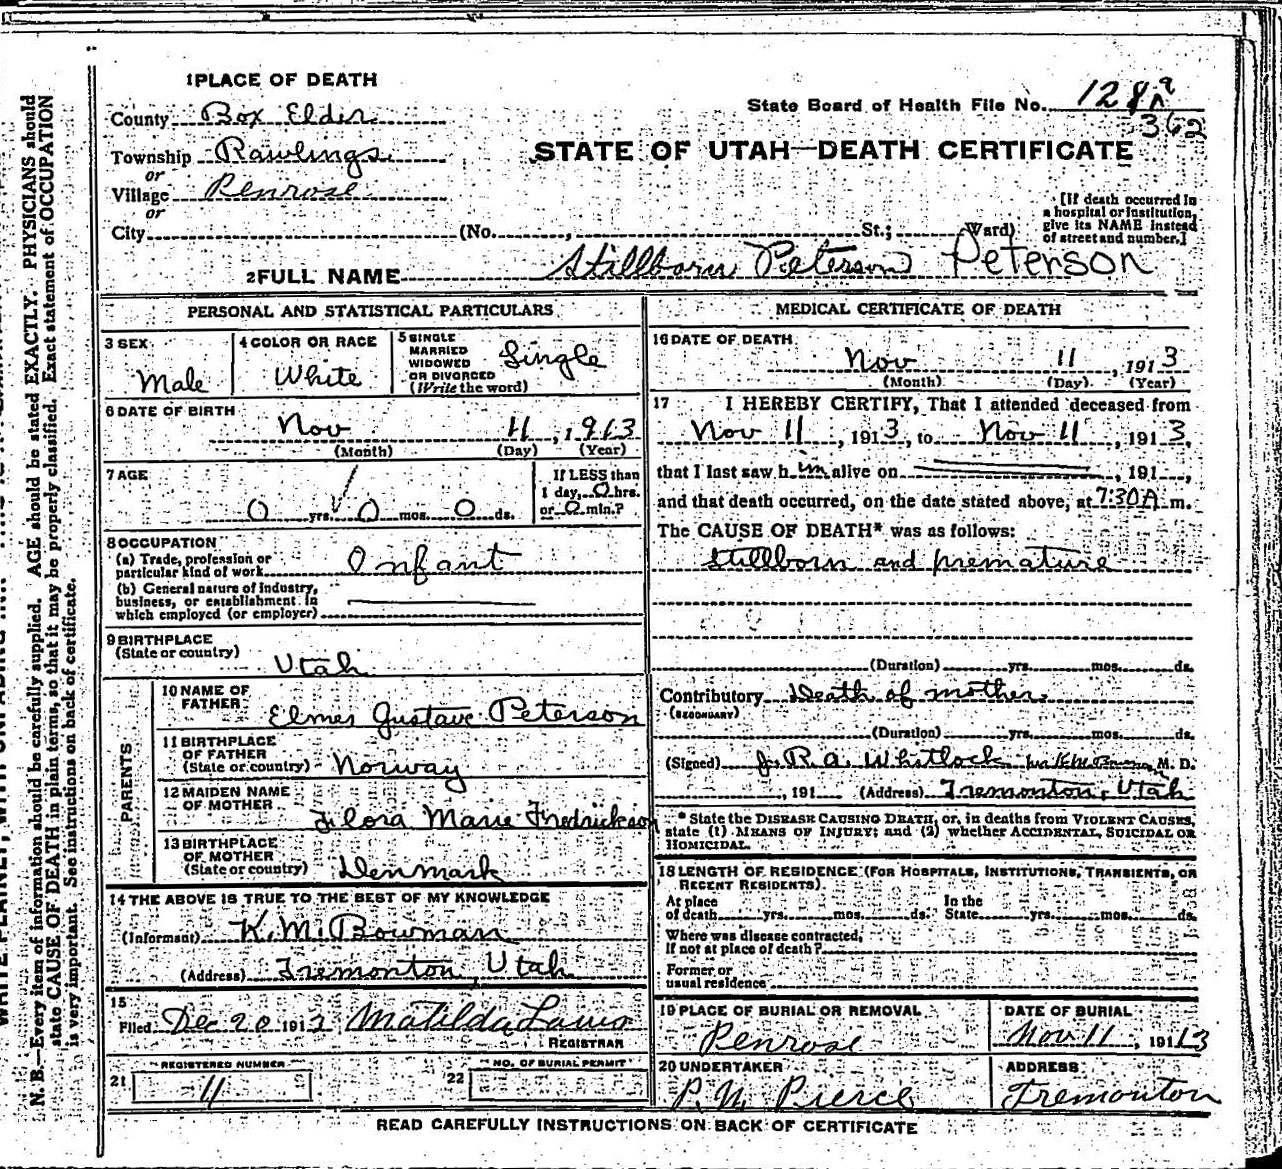 1 PLACE OF DEATH
County Box Elder
Township Rawlings
or
Village Penrose
or
City (No. , St.; Ward)
State Board of Health File No. 128
362
STATE OF UTAH—DEATH CERTIFICATE
[If death occurred in
a hospital or institution,
give its NAME instead
of street and number.]
2 FULL NAME Stillborn Peterson Peterson
PERSONAL AND STATISTICAL PARTICULARS
3 SEX
Male
4 COLOR OR RACE
White
5 SINGLE
MARRIED
WIDOWED
OR DIVORCED
(Write the word)
Single
6 DATE OF BIRTH
Nov 11, 1913
(Month) (Day) (Year)
7 AGE
0 yrs. 0 mos. 0 ds.
If LESS than
1 day, 0 hrs.
or 0 min.?
8 OCCUPATION
(a) Trade, profession or
particular kind of work Infant
(b) General nature of industry,
business, or establishment in
which employed (or employer)
9 BIRTHPLACE
(State or country)
Utah
PARENTS
10 NAME OF
FATHER
Elmer Gustave Peterson
11 BIRTHPLACE
OF FATHER
(State or country) Norway
12 MAIDEN NAME
OF MOTHER
Flora Marie Fredrickson
13 BIRTHPLACE
OF MOTHER
(State or country) Denmark
14 THE ABOVE IS TRUE TO THE BEST OF MY KNOWLEDGE
(Informant) K. M. Bowman
(Address) Tremonton, Utah
15
Filed Dec 20 191 Matilda
REGISTRAR
REGISTERED NUMBER
21 11
NO. OF BURIAL PERMIT
22
MEDICAL CERTIFICATE OF DEATH
16 DATE OF DEATH
Nov 11, 1913
(Month) (Day) (Year)
17 I HEREBY CERTIFY, That I attended deceased from
Nov 11, 1913, to Nov 11, 1913,
that I last saw h im alive on , 191 ,
and that death occurred, on the date stated above, at 7:30 A m.
The CAUSE OF DEATH* was as follows:
Stillborn and premature
(Duration) yrs. mos. ds.
Contributory Death of mother.
(SECONDARY)
(Duration) yrs. mos. ds.
(Signed) J. R. A. Whitlock M. D.
, 191 (Address) Tremonton, Utah
* State the DISEASE CAUSING DEATH, or, in deaths from VIOLENT CAUSES,
state (1) MEANS OF INJURY; and (2) whether ACCIDENTAL, SUICIDAL OR
HOMICIDAL.
18 LENGTH OF RESIDENCE (FOR HOSPITALS, INSTITUTIONS, TRANSIENTS, OR
RECENT RESIDENTS).
At place In the
of death yrs. mos. ds. State yrs. mos. ds.
Where was disease contracted,
if not at place of death?
Former or
usual residence
19 PLACE OF BURIAL OR REMOVAL
Penrose
DATE OF BURIAL
Nov 11, 19113
20 UNDERTAKER
P. N. Pierce
ADDRESS
Tremonton
READ CAREFULLY INSTRUCTIONS ON BACK OF CERTIFICATE
N. B.—Every item of information should be carefully supplied. AGE should be stated EXACTLY. PHYSICIANS should
state CAUSE OF DEATH in plain terms, so that it may be properly classified. Exact statement of OCCUPATION
is very important. See instructions on back of certificate.